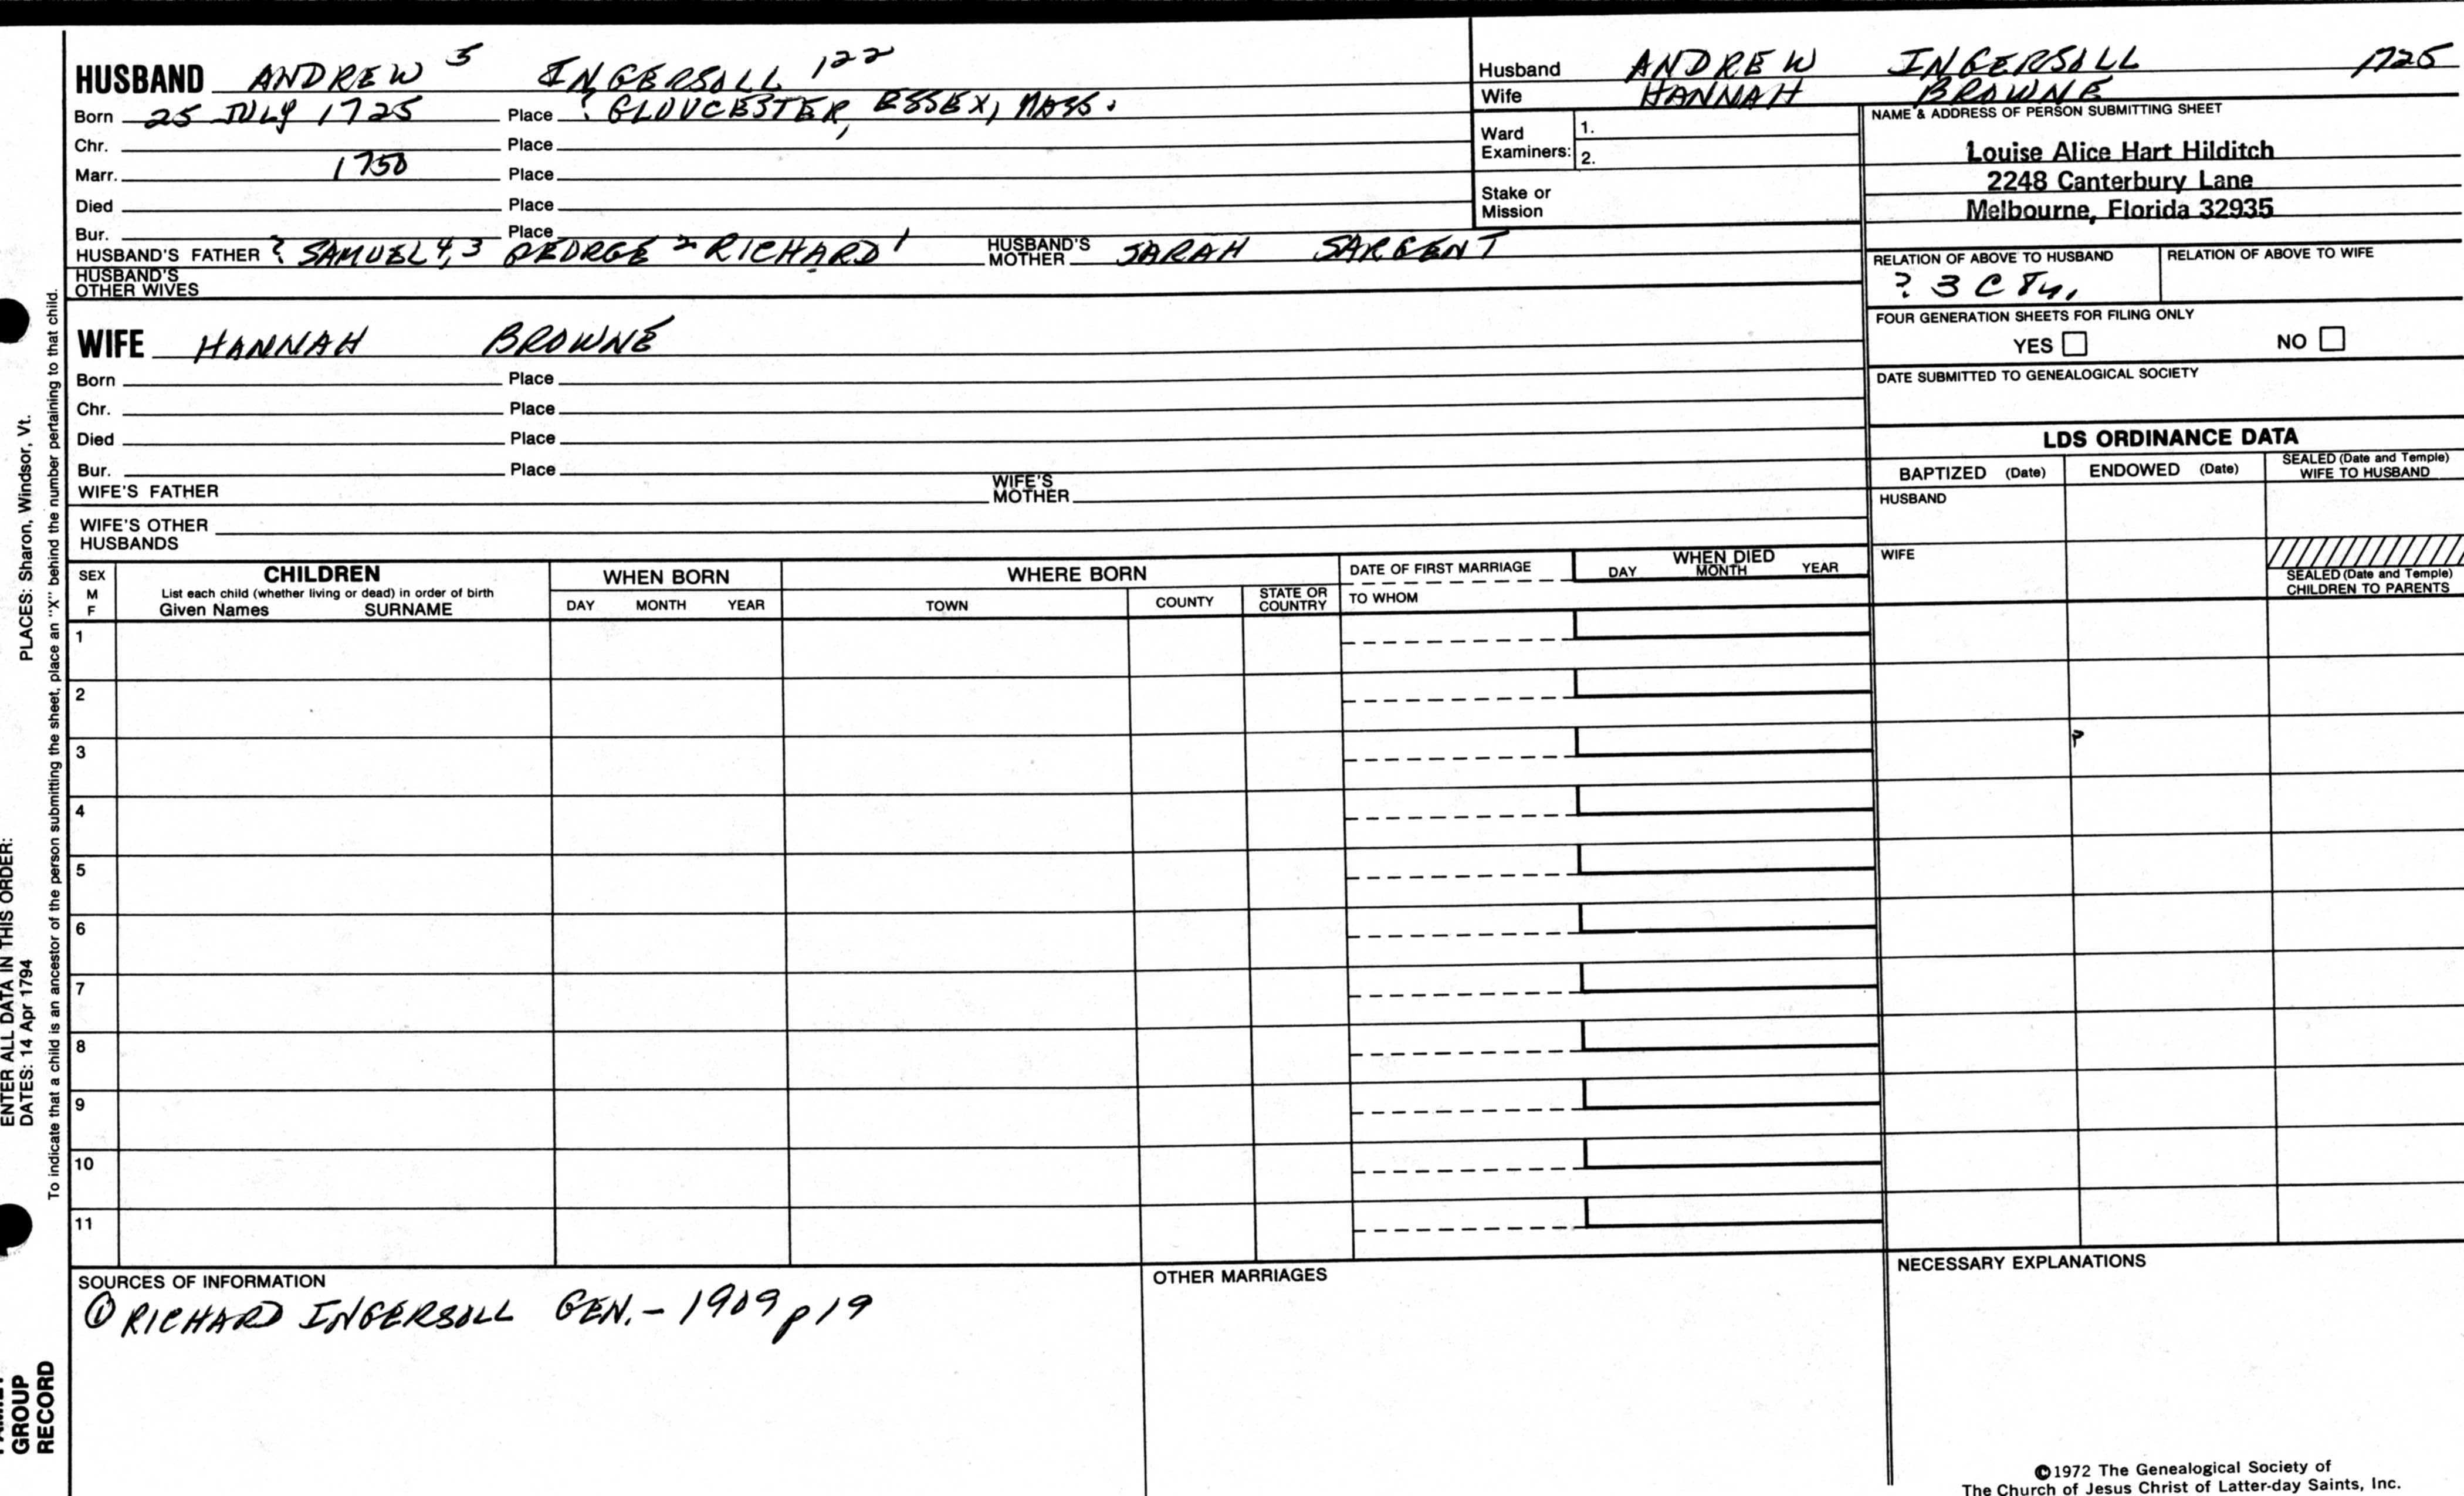 HUSBAND ANDREW 5 INGERSOLL 122
Born 25 JULY 1725 Place ? GLOUCESTER, ESSEX, MASS.
Chr. Place
Marr. 1750 Place
Died Place
Bur. Place
HUSBAND'S FATHER ? SAMUEL 4,3 GEORGE 2 RICHARD 1 HUSBAND'S MOTHER SARAH SARGENT
HUSBAND'S OTHER WIVES
WIFE HANNAH BROWNE
Born Place
Chr. Place
Died Place
Bur. Place
WIFE'S FATHER WIFE'S MOTHER
WIFE'S OTHER HUSBANDS
Husband ANDREW INGERSOLL 1725
Wife HANNAH BROWNE
Ward Examiners: 1.
2.
Stake or Mission
NAME & ADDRESS OF PERSON SUBMITTING SHEET
Louise Alice Hart Hilditch
2248 Canterbury Lane
Melbourne, Florida 32935
RELATION OF ABOVE TO HUSBAND RELATION OF ABOVE TO WIFE
? 3 C
FOUR GENERATION SHEETS FOR FILING ONLY
YES NO
DATE SUBMITTED TO GENEALOGICAL SOCIETY
LDS ORDINANCE DATA
BAPTIZED (Date) ENDOWED (Date) SEALED (Date and Temple) WIFE TO HUSBAND
HUSBAND
WIFE
SEALED (Date and Temple) CHILDREN TO PARENTS
SEX M F
CHILDREN
List each child (whether living or dead) in order of birth
Given Names SURNAME
WHEN BORN
DAY MONTH YEAR
WHERE BORN
TOWN COUNTY STATE OR COUNTRY
DATE OF FIRST MARRIAGE
TO WHOM
WHEN DIED
DAY MONTH YEAR
1
2
3
4
5
6
7
8
9
10
11
SOURCES OF INFORMATION
① RICHARD INGERSOLL GEN. - 1909 p 19
OTHER MARRIAGES
NECESSARY EXPLANATIONS
©1972 The Genealogical Society of
The Church of Jesus Christ of Latter-day Saints, Inc.
ENTER ALL DATA IN THIS ORDER:
DATES: 14 Apr 1794 PLACES: Sharon, Windsor, Vt.
To indicate that a child is an ancestor of the person submitting the sheet, place an "X" behind the number pertaining to that child.
GROUP
RECORD